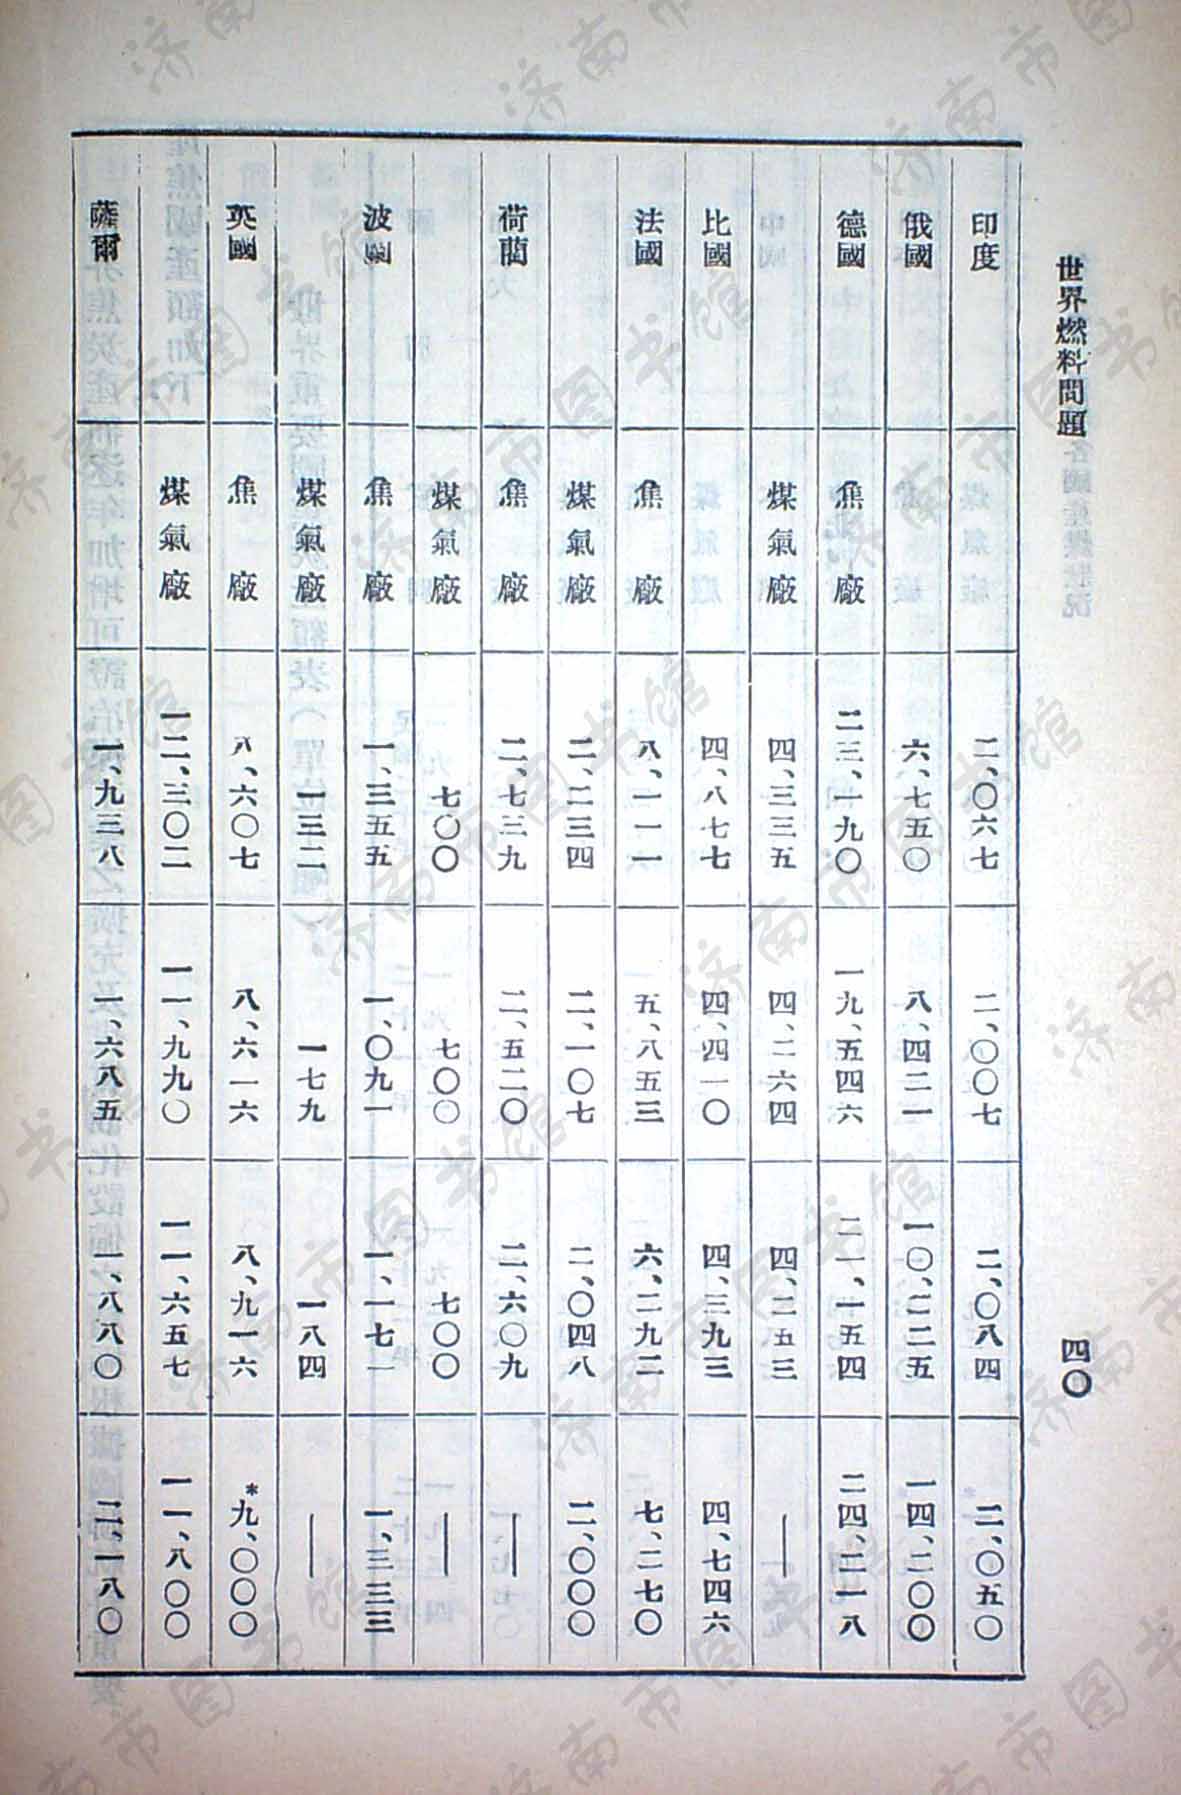 世界燃料問題
四〇
印度 二、〇六七 二、〇〇七 二、〇八四 *二、〇五〇
俄國 六、七五〇 八、四二一 一〇、二二五 一四、二〇〇
德國 焦廠 二三、一九〇 一九、五四六 二一、一五四 二四、二一八
煤氣廠 四、三三五 四、二六四 四、二五三 ——
比國 四、八七七 四、四一〇 四、三九三 四、七四六
法國 焦廠 八、一一一 五、八五三 六、二九二 七、二七〇
煤氣廠 二、二三四 二、一〇七 二、〇四八 二、〇〇〇
荷蘭 焦廠 二、七三九 二、五二〇 二、六〇九 ——
煤氣廠 七〇〇 七〇〇 七〇〇 ——
波蘭 焦廠 一、三五五 一、〇九一 一、一七一 一、三三三
煤氣廠 一三二 一七九 一八四 ——
英國 焦廠 八、六〇七 八、六一六 八、九一六 *九、〇〇〇
煤氣廠 一二、三〇二 一一、九九〇 一一、六五七 一一、八〇〇
薩爾 一、九三八 一、六八五 一、八八〇 二、一八〇
济南市图书馆